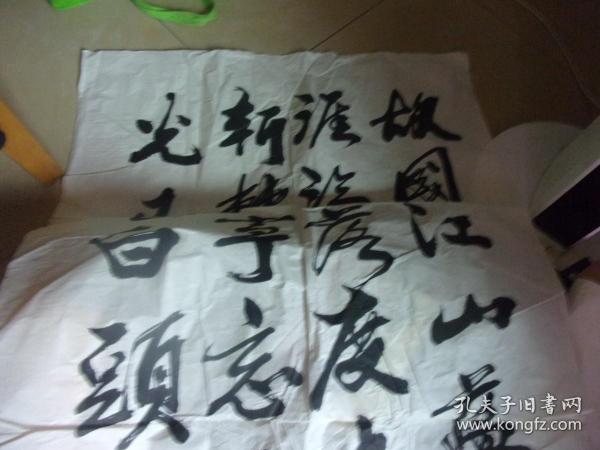 故國江山
涯淪落度
斬抛寧忘
光昔頭
孔夫子旧书网
www.kongfz.com